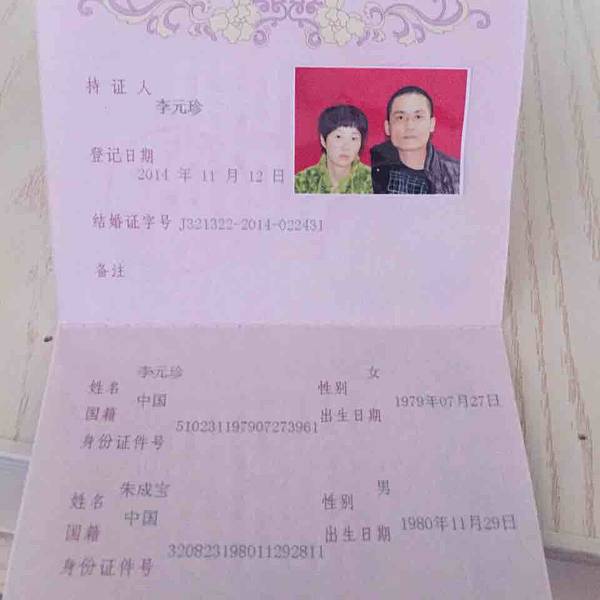 持证人
李元珍
登记日期
2014 年 11 月 12 日
结婚证字号 J321322-2014-022431
备注
李元珍 女
姓名 性别
中国 1979年07月27日
国籍 出生日期
510231197907273961
身份证件号
朱成宝 男
姓名 性别
中国 1980年11月29日
国籍 出生日期
320823198011292811
身份证件号